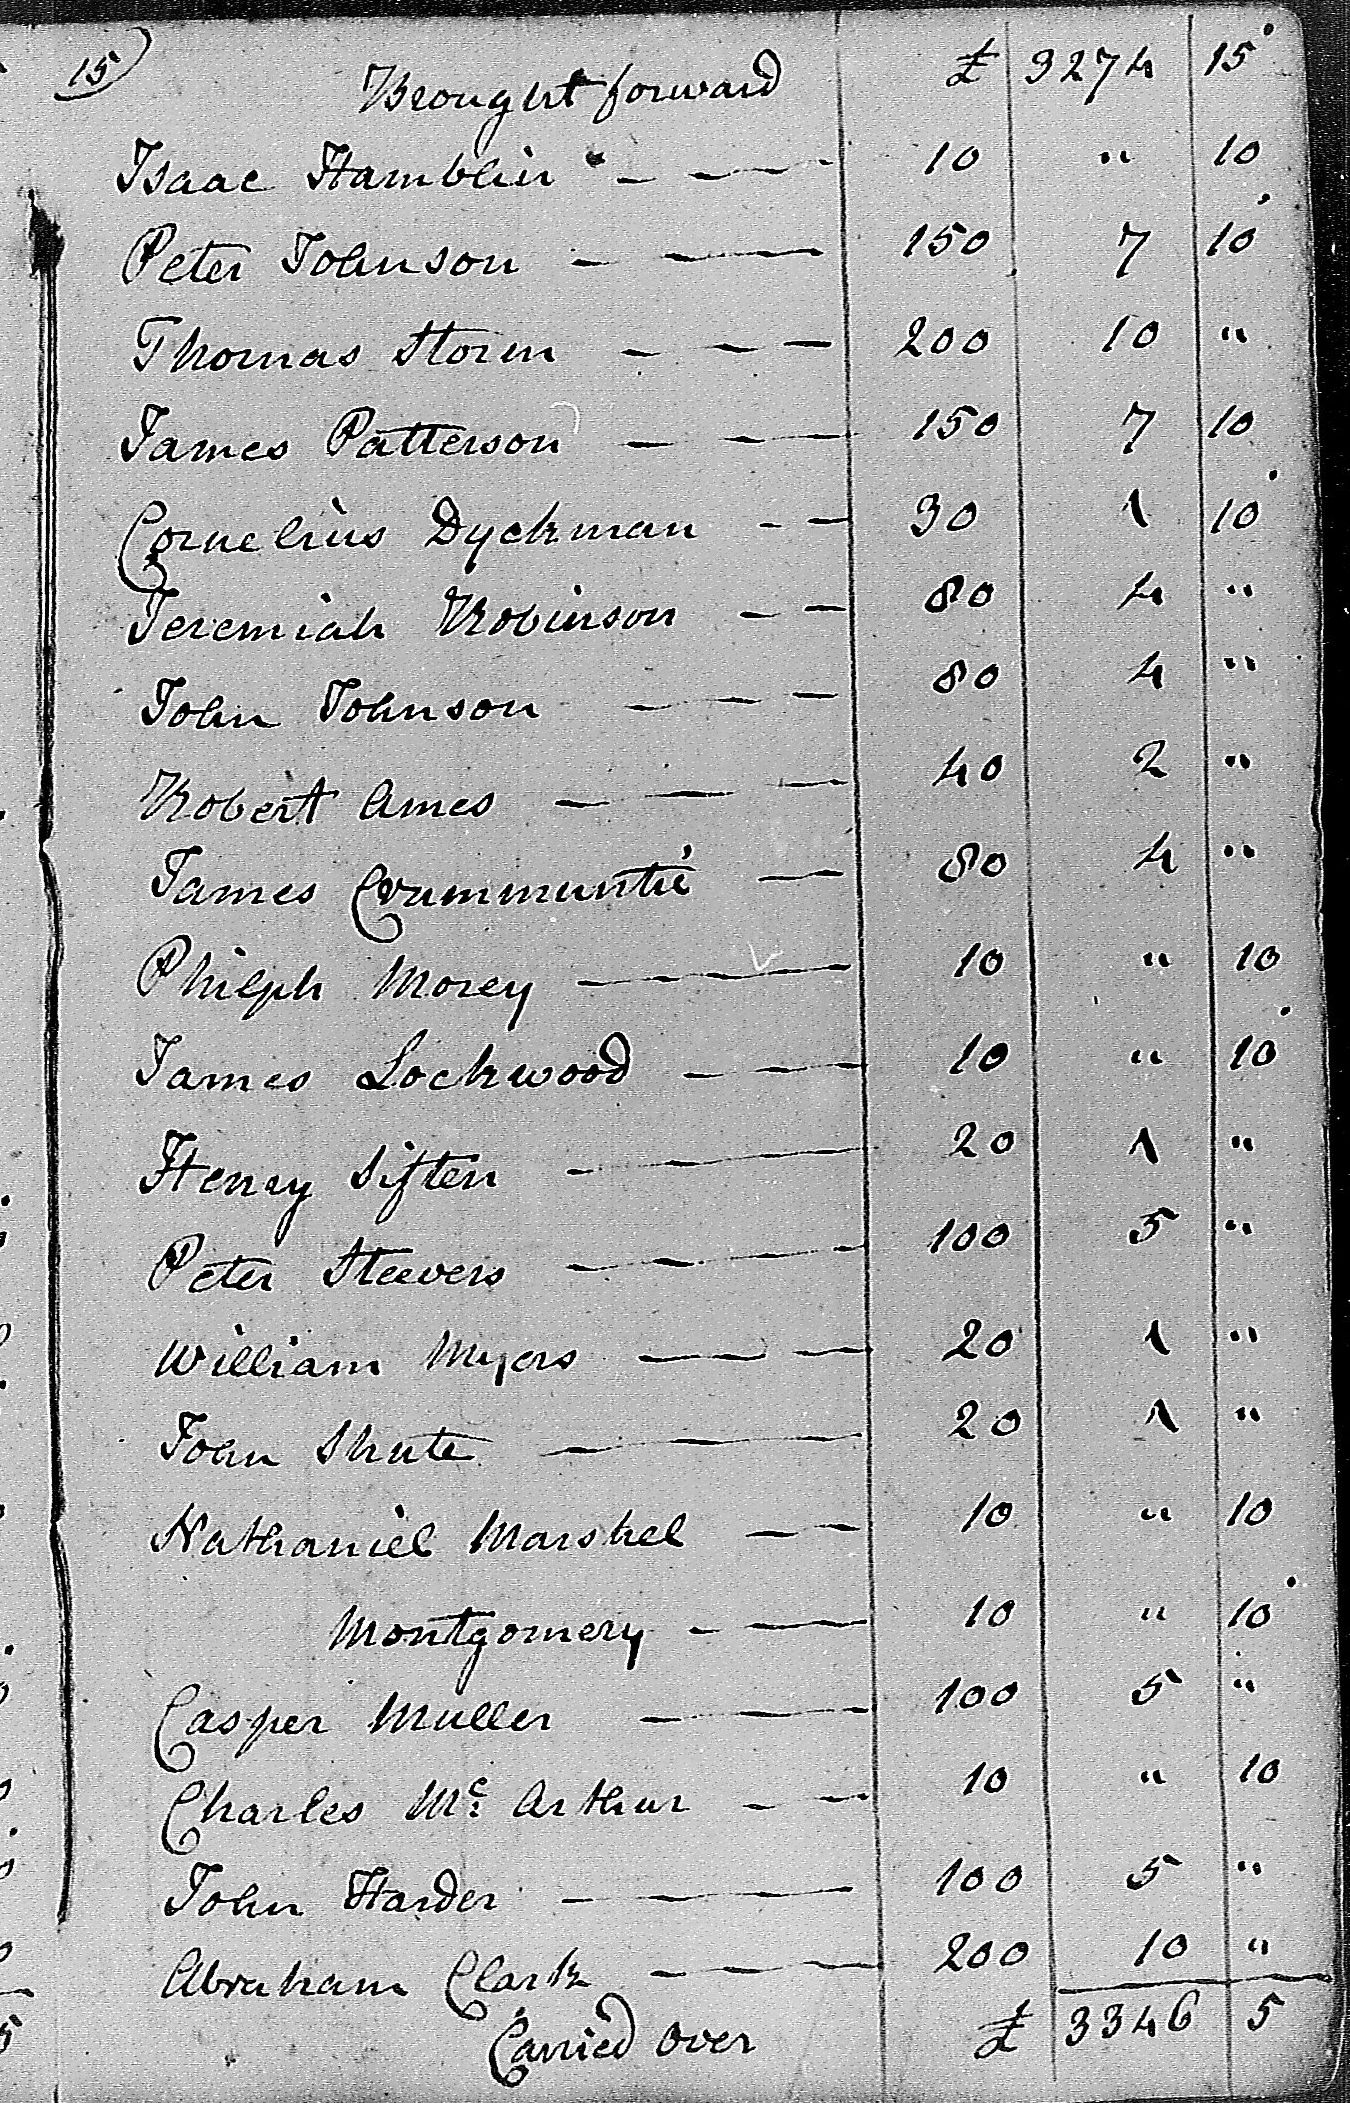 15) Brought forward £ 3274 15
Isaac Hamblin 10 " 10
Peter Johnson 150 7 10
Thomas Storm 200 10 "
James Patterson 150 7 10
Cornelius Dyckman 30 1 10
Jeremiah Robinson 80 4 "
John Johnson 80 4 "
Robert Ames 40 2 "
James Crummuntie 80 4 "
Philph Morey 10 " 10
James Lockwood 10 " 10
Henry Siften 20 1 "
Peter Steevers 100 5 "
William Myers 20 1 "
John Shute 20 1 "
Nathaniel Marshel 10 " 10
Montgomery 10 " 10
Casper Muller 100 5 "
Charles Mc Arthur 10 " 10
John Harder 100 5 "
Abraham Clark 200 10 "
Carried over £ 3346 5